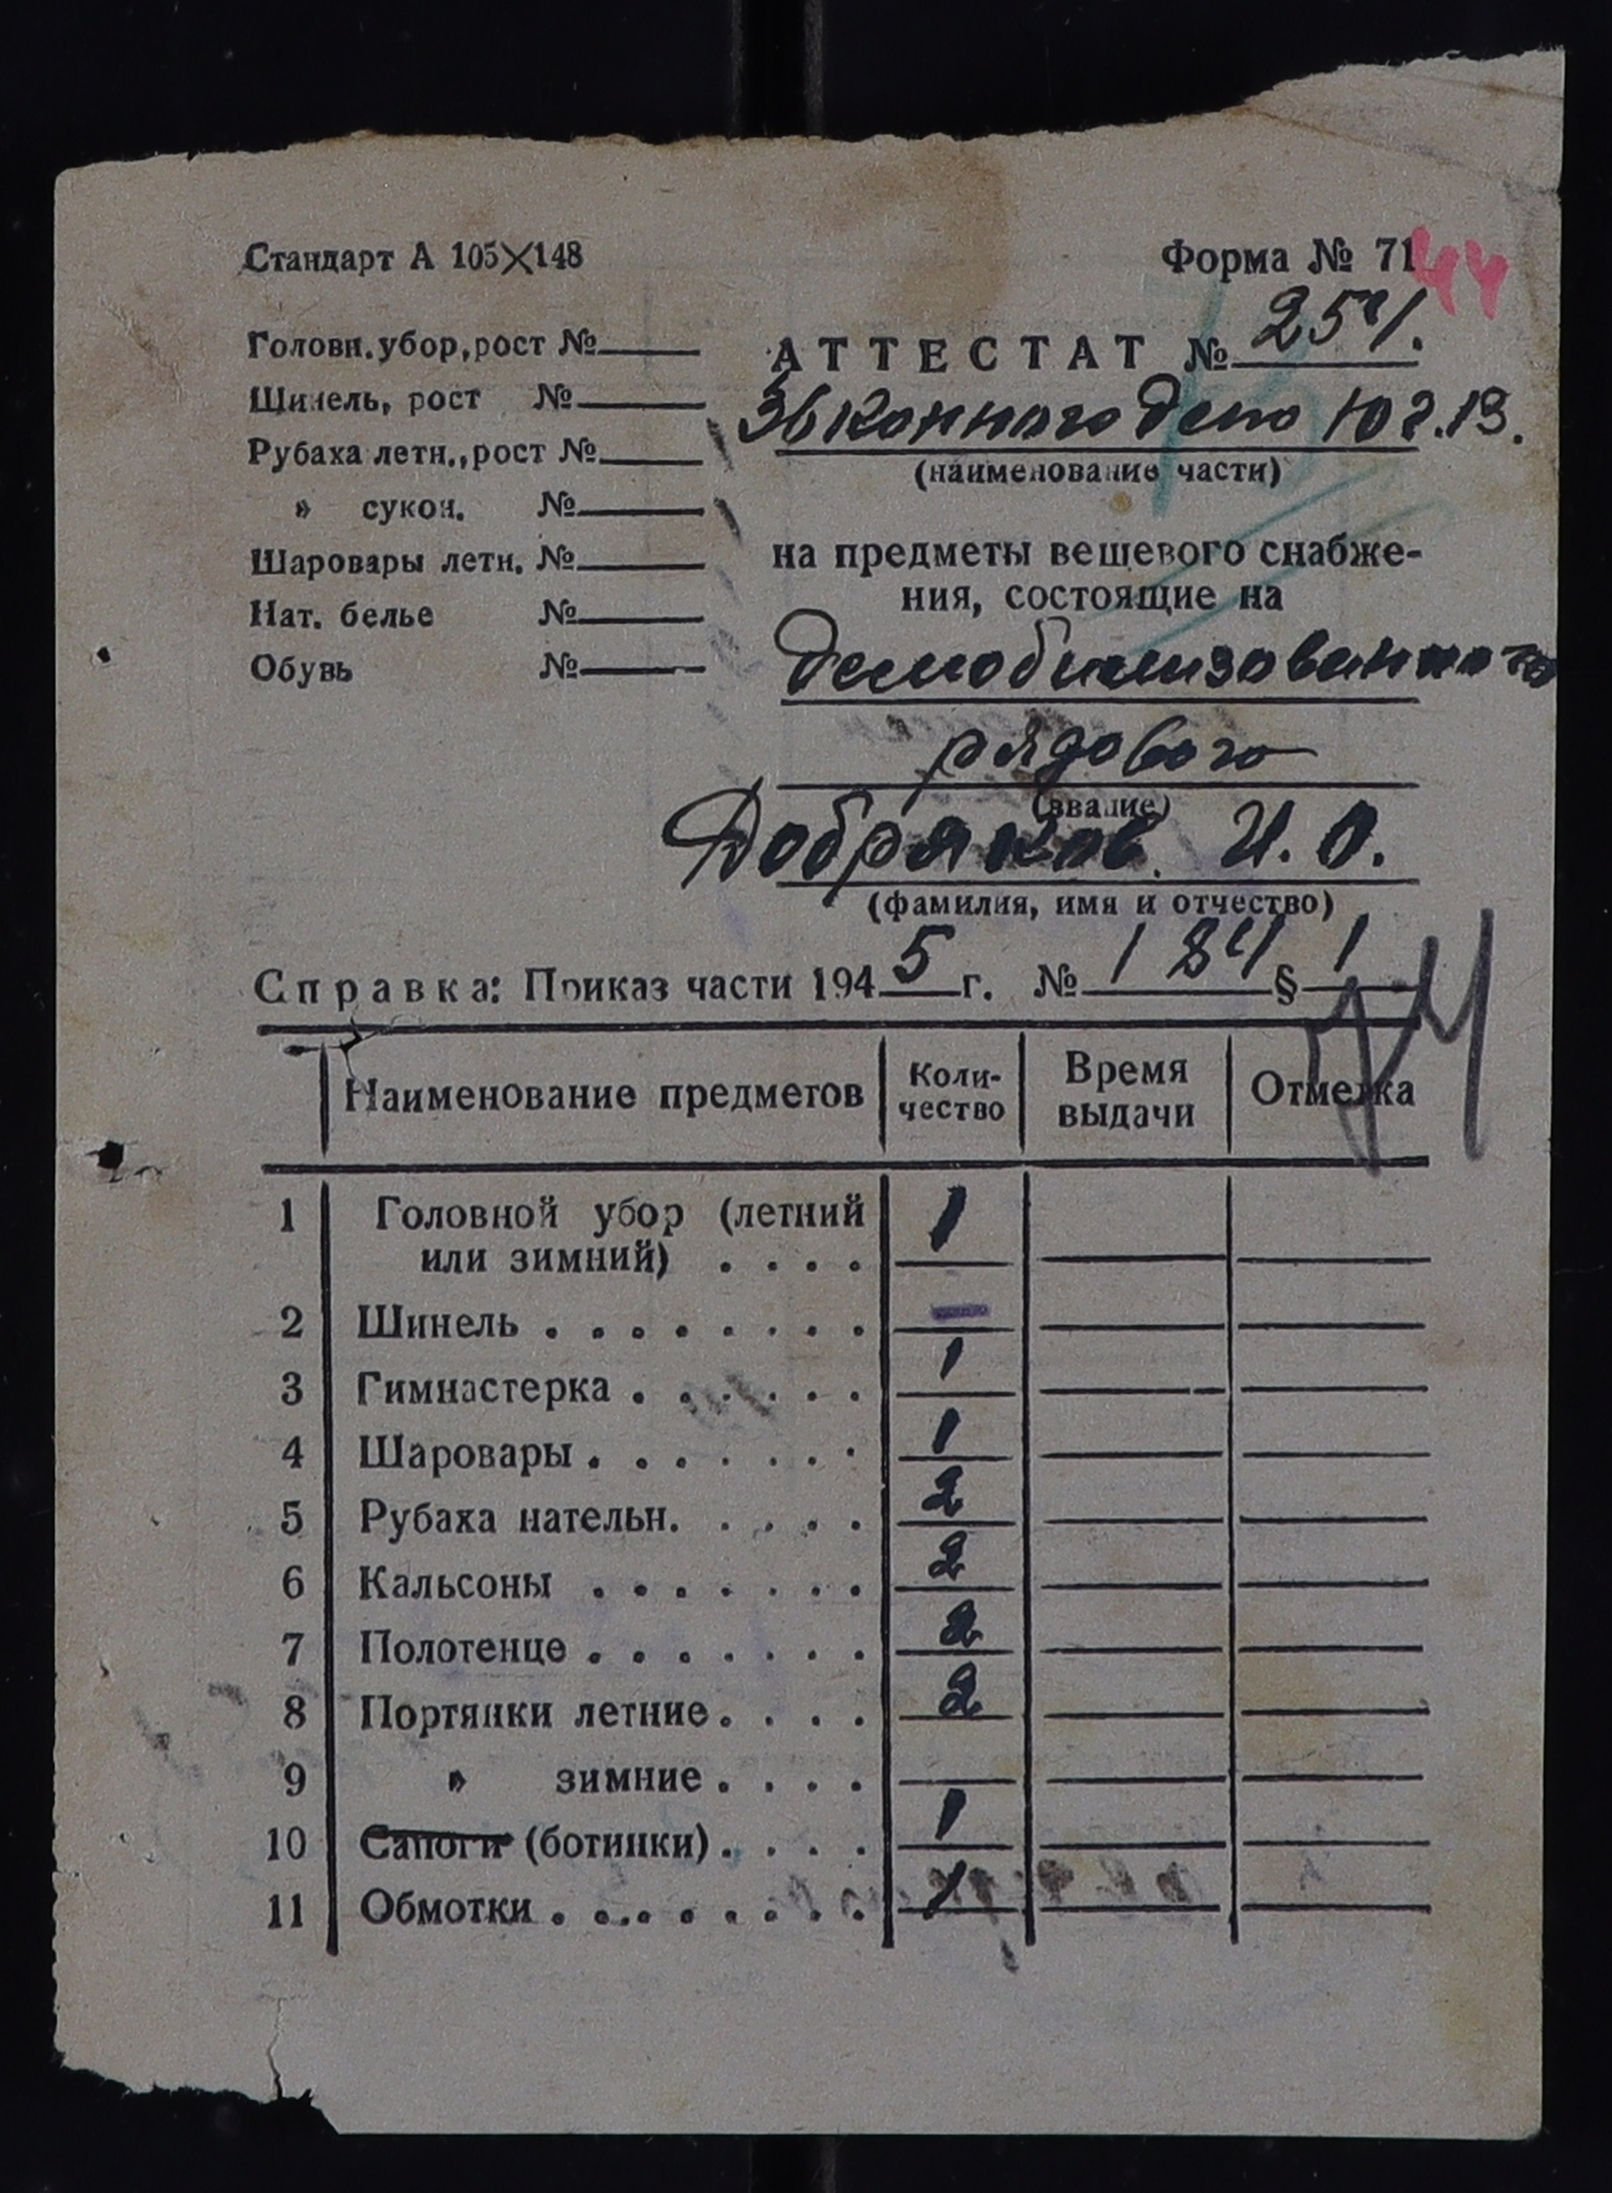 Стандарт А 105×148
Форма № 71
44
Головн. убор, рост №
Шинель, рост №
Рубаха летн., рост №
» сукон. №
Шаровары летн. №
Нат. белье №
Обувь №
АТТЕСТАТ № 254.
36 конного депо ЮГ.В.
(наименование части)
на предметы вещевого снабже-
ния, состоящие на
демобилизованного
рядового
(звание)
Добряков И. О.
(фамилия, имя и отчество)
Справка: Приказ части 1945 г. № 184 § 1
Наименование предметов Коли-чество Время выдачи Отметка
1 Головной убор (летний
или зимний) . . . . 1
2 Шинель . . . . . . . . . —
3 Гимнастерка . . . . . . . 1
4 Шаровары . . . . . . . 1
5 Рубаха нательн. . . . . 2
6 Кальсоны . . . . . . . 2
7 Полотенце . . . . . . . 2
8 Портянки летние . . . . 2
9 » зимние . . . .
10 Сапоги (ботинки) . . . . 1
11 Обмотки . . . . . . . . . 1